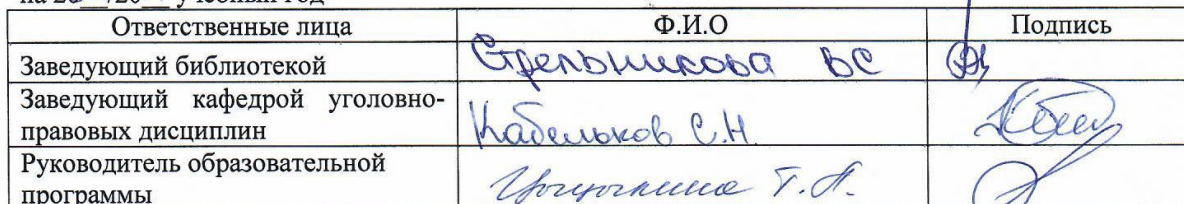 на 20__/20__ учебный год
Ответственные лица Ф.И.О Подпись
Заведующий библиотекой Стрельникова ВС
Заведующий кафедрой уголовно-
правовых дисциплин Кабельков С.Н.
Руководитель образовательной
программы Т.П.